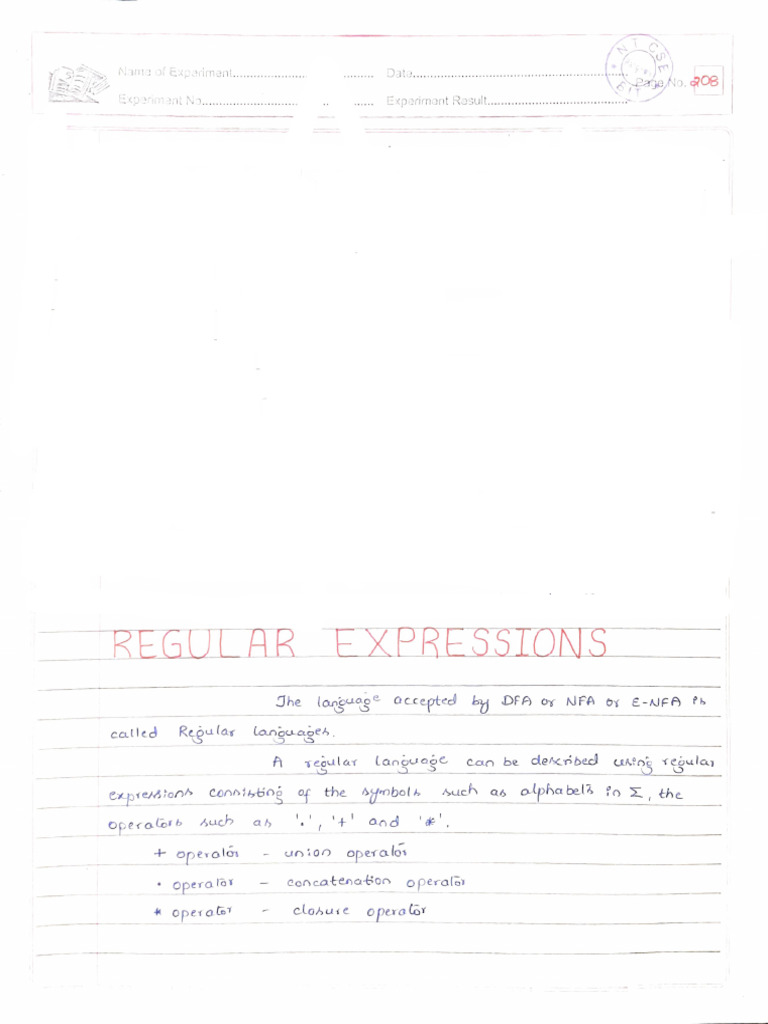 Name of Experiment.................... ......... Date......................................................
Page No. 208
Experiment No............................ ...... Experiment Result.......................................
NT CSE
BIT
REGULAR EXPRESSIONS
The language accepted by DFA or NFA or E-NFA is
called Regular languages.
A regular language can be described using regular
expressions consisting of the symbols such as alphabets in Σ, the
operators such as '.', '+' and '*'.
+ operator - union operator
. operator - concatenation operator
* operator - closure operator